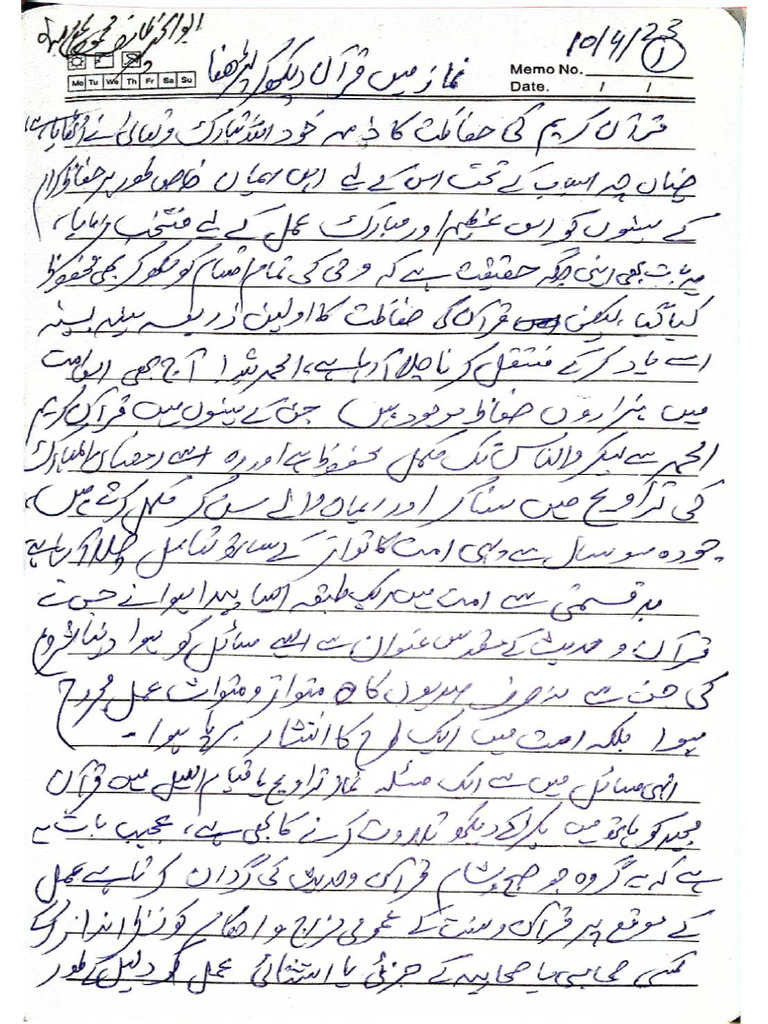 10/4/23
(1)
Memo No.
Date. / /
Mo Tu We Th Fr Sa Su
نماز میں قرآن دیکھ کر پڑھنا
قرآن کریم کی حفاظت کا ذمہ خود اللہ تبارک و تعالیٰ نے اٹھایا ہے،
چناں چہ اسباب کے تحت اس کے لیے اہل ایمان خاص طور پر حفاظ کرام
کے سینوں کو اس عظیم اور مبارک عمل کے لیے منتخب فرمایا،
یہ بات بھی اپنی جگہ حقیقت ہے کہ وحی کی تمام اقسام کو لکھ کر بھی محفوظ
کیا گیا، لیکن قرآن کی حفاظت کا اولین ذریعہ سینہ بسینہ
اسے یاد کر کے منتقل کرنا چلا آ رہا ہے، الحمد للہ! آج بھی اس امت
میں ہزاروں حفاظ موجود ہیں جن کے سینوں میں قرآن کریم
الحمد سے لیکر والناس تک مکمل محفوظ ہے اور وہ اسے رمضان المبارک
کی تراویح میں سنا کر اور ایمان والے سن کر مکمل کرتے ہیں،
چودہ سو سال سے یہی امت کا تواتر کے ساتھ تعامل چلا آ رہا ہے
بد قسمتی سے امت میں ایک طبقہ ایسا پیدا ہوا ہے جس نے
قرآن و حدیث کے مقدس عنوان سے ایسے مسائل کو ہوا دینا شروع
کی جن سے نہ صرف صدیوں کا متواتر و متوارث عمل مجروح
ہوا بلکہ امت میں ایک طرح کا انتشار برپا ہوا۔
انہی مسائل میں سے ایک مسئلہ نماز تراویح یا قیام اللیل میں قرآن
مجید کو ہاتھ میں پکڑ کے دیکھ کر تلاوت کرنے کا بھی ہے، عجیب بات یہ
ہے کہ یہ گروہ جو صبح و شام قرآن و حدیث کی گردان کرتا ہے عمل
کے موقع پر قرآن و سنت کے عمومی مزاج و احکام کو نظر انداز کر کے
کسی صحابی یا صحابیہ کے جزئی یا استثنائی عمل کو دلیل کے طور